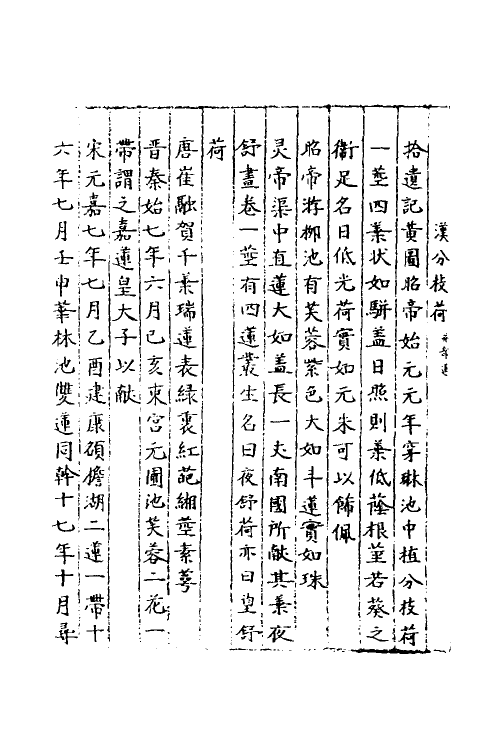 漢分枝荷
拾遺記黃圖昭帝始元元年穿琳池中植分枝荷
一莖四葉状如駢盖日照則葉低蔭根莖若葵之
衛足名曰低光荷實如元朱可以飾佩
昭帝游柳池有芙蓉紫色大如斗蓮實如珠
灵帝渠中有蓮大如盖長一丈南國所献其葉夜
舒晝卷一莖有四蓮叢生名曰夜舒荷亦曰望舒
荷
唐崔融賀千葉瑞蓮表緑裏紅葩緗莖素蕚
晋秦始七年六月己亥東宮元圃池芙蓉二花一
帶謂之嘉蓮皇大子以献
宋元嘉七年七月乙酉建康碩檐湖二蓮一帶十
六年七月壬申華林池雙蓮同幹十七年十月尋